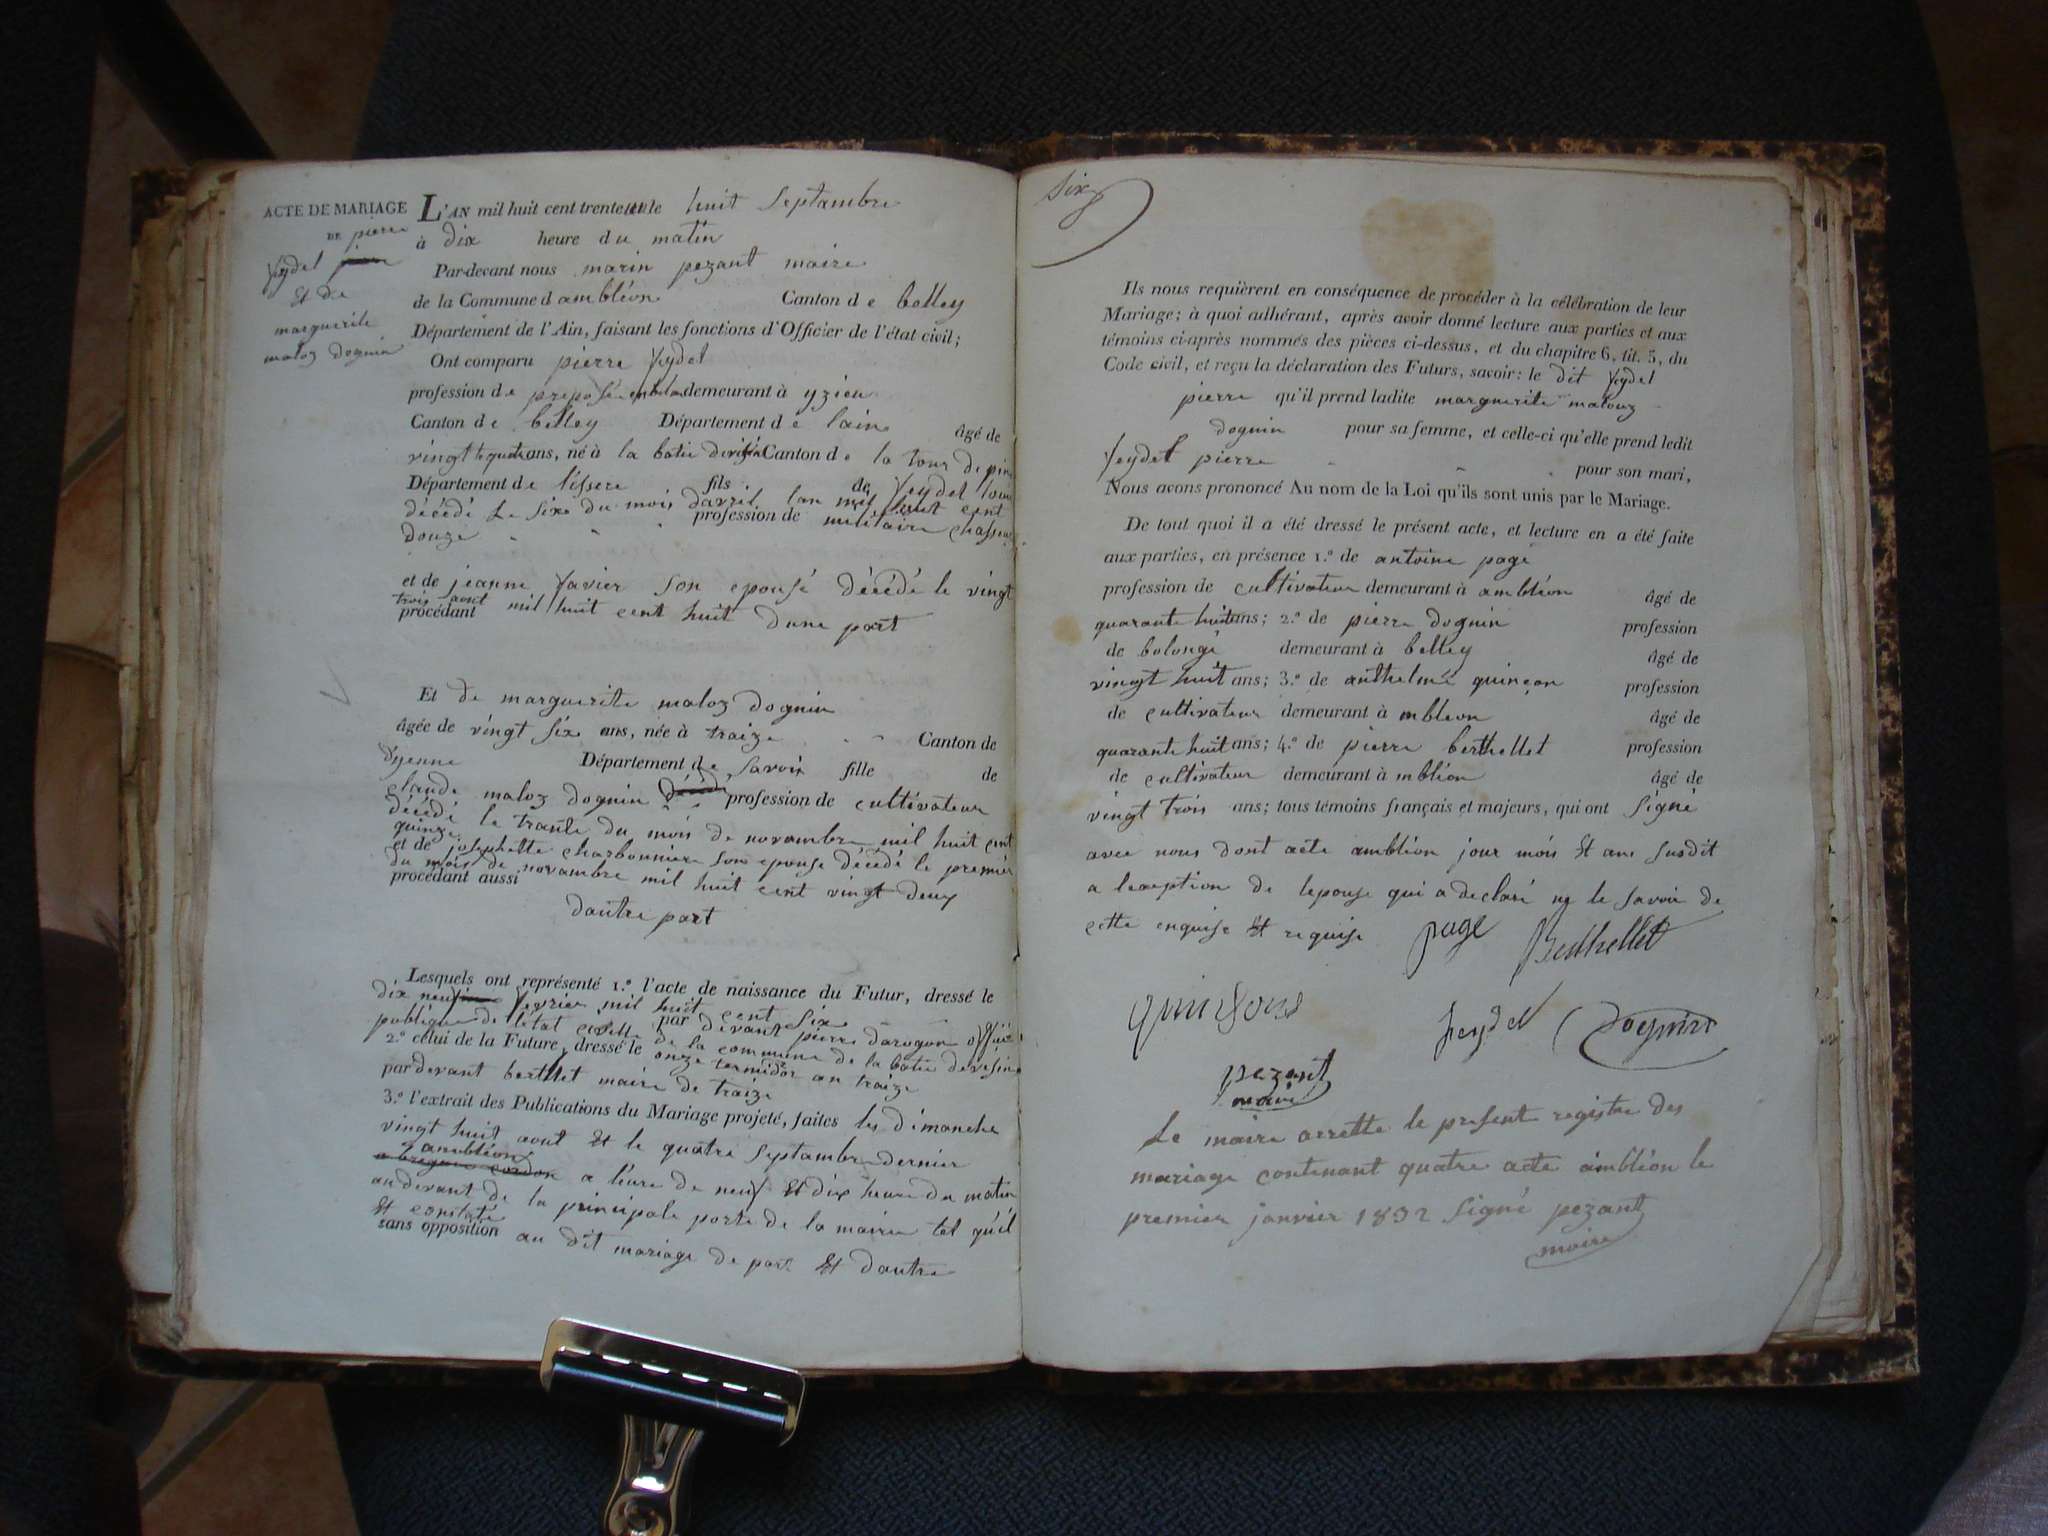 ACTE DE MARIAGE
DE pierre
feydel
Et de
marguerite
maloz dognin
L'AN mil huit cent trente un le huit Septambre
à dix heure du matin
Par-devant nous marin pezant maire
de la Commune d ambléon Canton d e belley
Département de l'Ain, faisant les fonctions d'Officier de l'état civil;
Ont comparu pierre feydel
profession de preposé demeurant à yzieu
Canton d e belley Département d e lain âgé de
vingt ans, né à la batie Canton d e la tour de pin
Département de lissere fils de feydel
décédé Le sixe du mois davril lan mil huit cent
douze profession de militaire chasseur
et de jeanne favier son epousé décédé le vingt
trois aout
procédant mil huit cent huit dune part
Et de marguerite maloz dognin
âgée de vingt six ans, née à traize Canton de
dyenne Département de Savoix fille de
claude maloz dognin profession de cultivateur
décédé le trante du mois de novambre mil huit cent
quinze
et de josephette charbonnier son epouse décédé le premier
du mois de novambre mil huit cent vingt deux
procédant aussi
dautre part
Lesquels ont représenté 1.º l'acte de naissance du Futur, dressé le
dix neuf fevrier mil huit cent six
par devant pierre daragon officier
publique de létat civill de la commune de la batie
2.º celui de la Future, dressé le onze termidor an traize
par devant berthet maire de traize
3.º l'extrait des Publications du Mariage projeté, faites les dimanche
vingt huit aout Et le quatre Septambre dernier
ambléon a léure de neuf Et dix heure du matin
audevant de la principale porte de la mairie tel qu'il
Et constaté
sans opposition au dit mariage de part Et dautre
six
Ils nous requièrent en conséquence de procéder à la célébration de leur
Mariage; à quoi adhérant, après avoir donné lecture aux parties et aux
témoins ci-après nommés des pièces ci-dessus, et du chapitre 6, tit. 5, du
Code civil, et reçu la déclaration des Futurs, savoir: le dit feydel
pierre qu'il prend ladite marguerite malouz
dognin pour sa femme, et celle-ci qu'elle prend ledit
feydel pierre pour son mari,
Nous avons prononcé Au nom de la Loi qu'ils sont unis par le Mariage.
De tout quoi il a été dressé le présent acte, et lecture en a été faite
aux parties, en présence 1.º de antoine page
profession de cultivateur demeurant à ambléon âgé de
quarante huit ans; 2.º de pierre dognin profession
de bolongé demeurant à belley âgé de
vingt huit ans; 3.º de anthelme quinçon profession
de cultivateur demeurant à mbleon âgé de
quarante huit ans; 4.º de pierre berthellet profession
de cultivateur demeurant à mbléon âgé de
vingt trois ans; tous témoins français et majeurs, qui ont signé
avec nous dont acte ambléon jour mois Et ans susdit
a lexeption de lepouse qui a declaré ne le savoir de
cette enquise Et requise page Berthellet
quinsons feydel Dognin
pezant
maire
Le maire arrette le present registre des
mariage contenant quatre acte ambléon le
premier janvier 1832 Signé pezant
maire